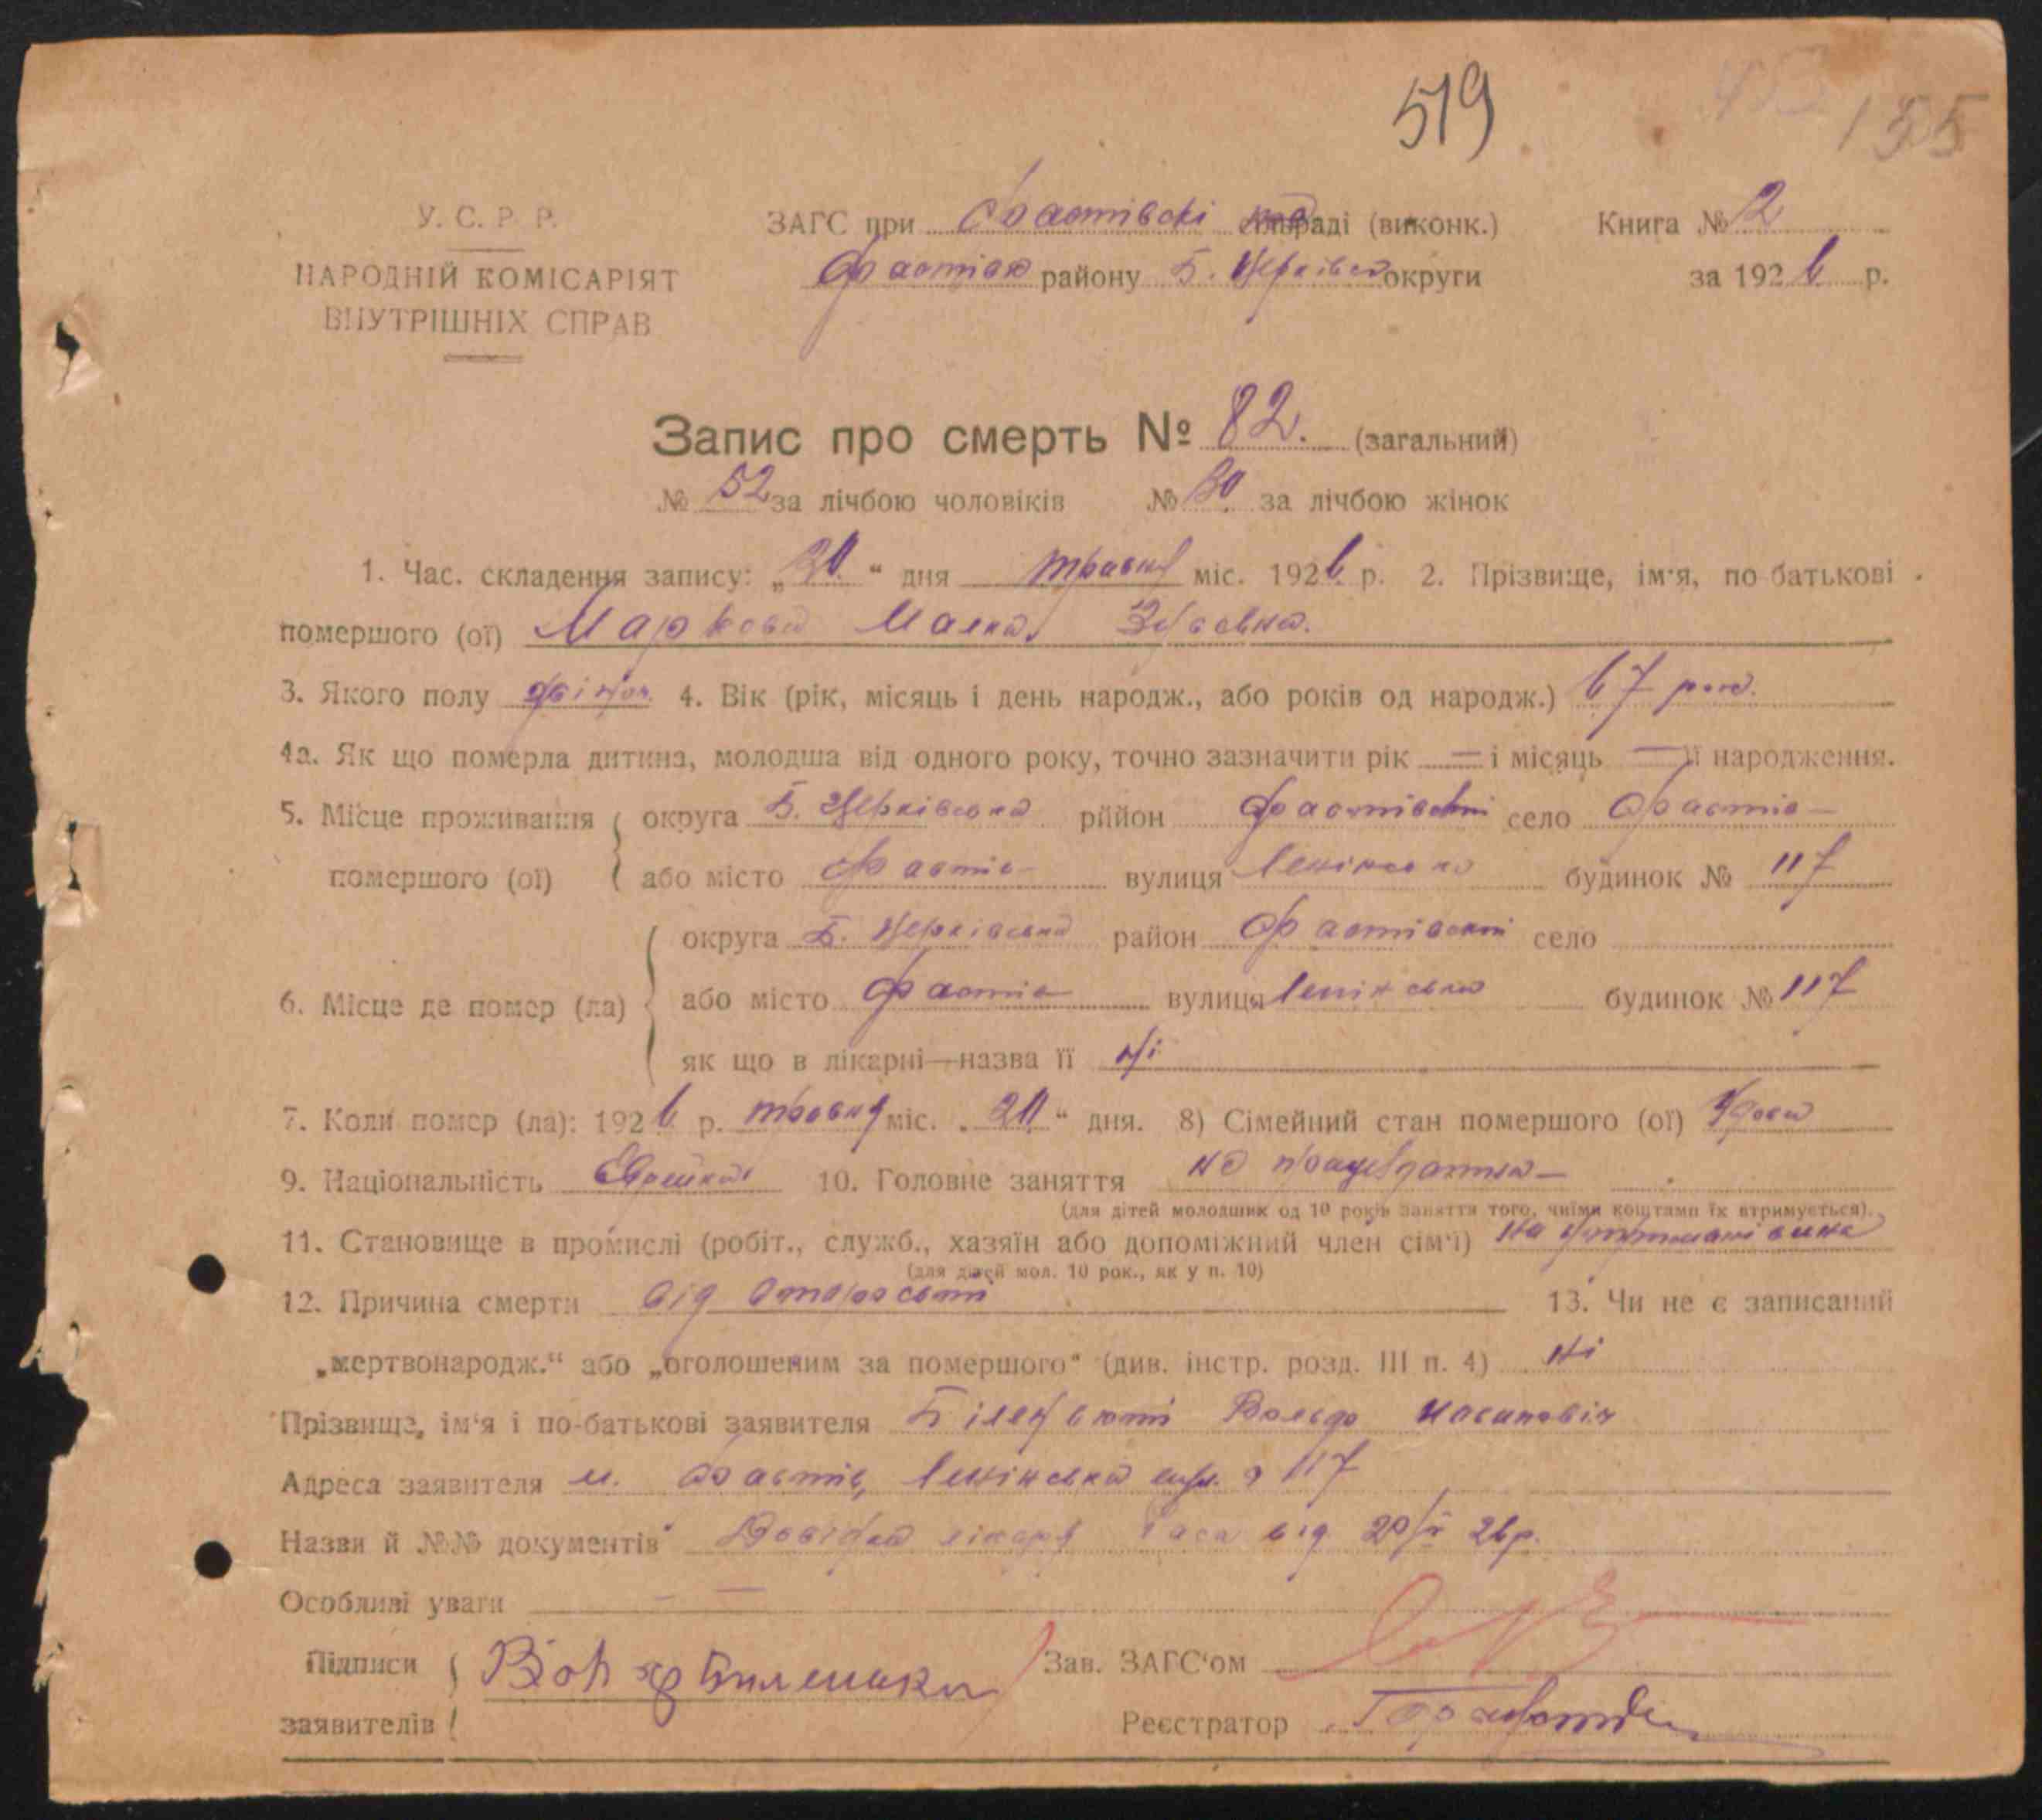 519
155
У. С. Р. Р.
НАРОДНІЙ КОМІСАРІЯТ
ВНУТРІШНІХ СПРАВ
ЗАГС при Фастівські раді (виконк.)
району Б. Церківськ округи
Книга № 2
за 1926 р.
Запис про смерть № 82. (загальний)
№ 52 за лічбою чоловіків № 30 за лічбою жінок
1. Час. складення запису: „20“ дня травня міс. 1926 р. 2. Прізвище, ім'я, по-батькові
помершого (ої) Маркова Малка
3. Якого полу жіноч. 4. Вік (рік, місяць і день народж., або років од народж.) 67 рок.
4а. Як що померла дитина, молодша від одного року, точно зазначити рік — і місяць — її народження.
5. Місце проживання округа Б. Церківська район Фастівські село Фастів
помершого (ої) або місто Фастів вулиця Ленінська будинок № 117
округа Б. Церківська район Фастівські село
6. Місце де помер (ла) або місто Фастів вулиця Ленінська будинок № 117
як що в лікарні—назва її ні
7. Коли помер (ла): 1926 р. травня міс. „20“ дня. 8) Сімейний стан помершого (ої) Удова
9. Національність Єврейка 10. Головне заняття не працездатна
(для дітей молодших од 10 років заняття того, чиїми коштами їх втримується).
11. Становище в промислі (робіт., служб., хазяїн або допоміжний член сім'ї) на утриманні
(для дітей мол. 10 рок., як у п. 10)
12. Причина смерти від старости 13. Чи не є записаний
„мертвонародж.“ або „оголошеним за помершого“ (див. інстр. розд. III п. 4) ні
Прізвище, ім'я і по-батькові заявителя Вольф
Адреса заявителя м. Фастів, Ленінська вул. 117
Назви й №№ документів Довідка лікаря від 20/V 26р.
Особливі уваги — —
Підписи
заявителів
Зав. ЗАГС'ом
Реєстратор